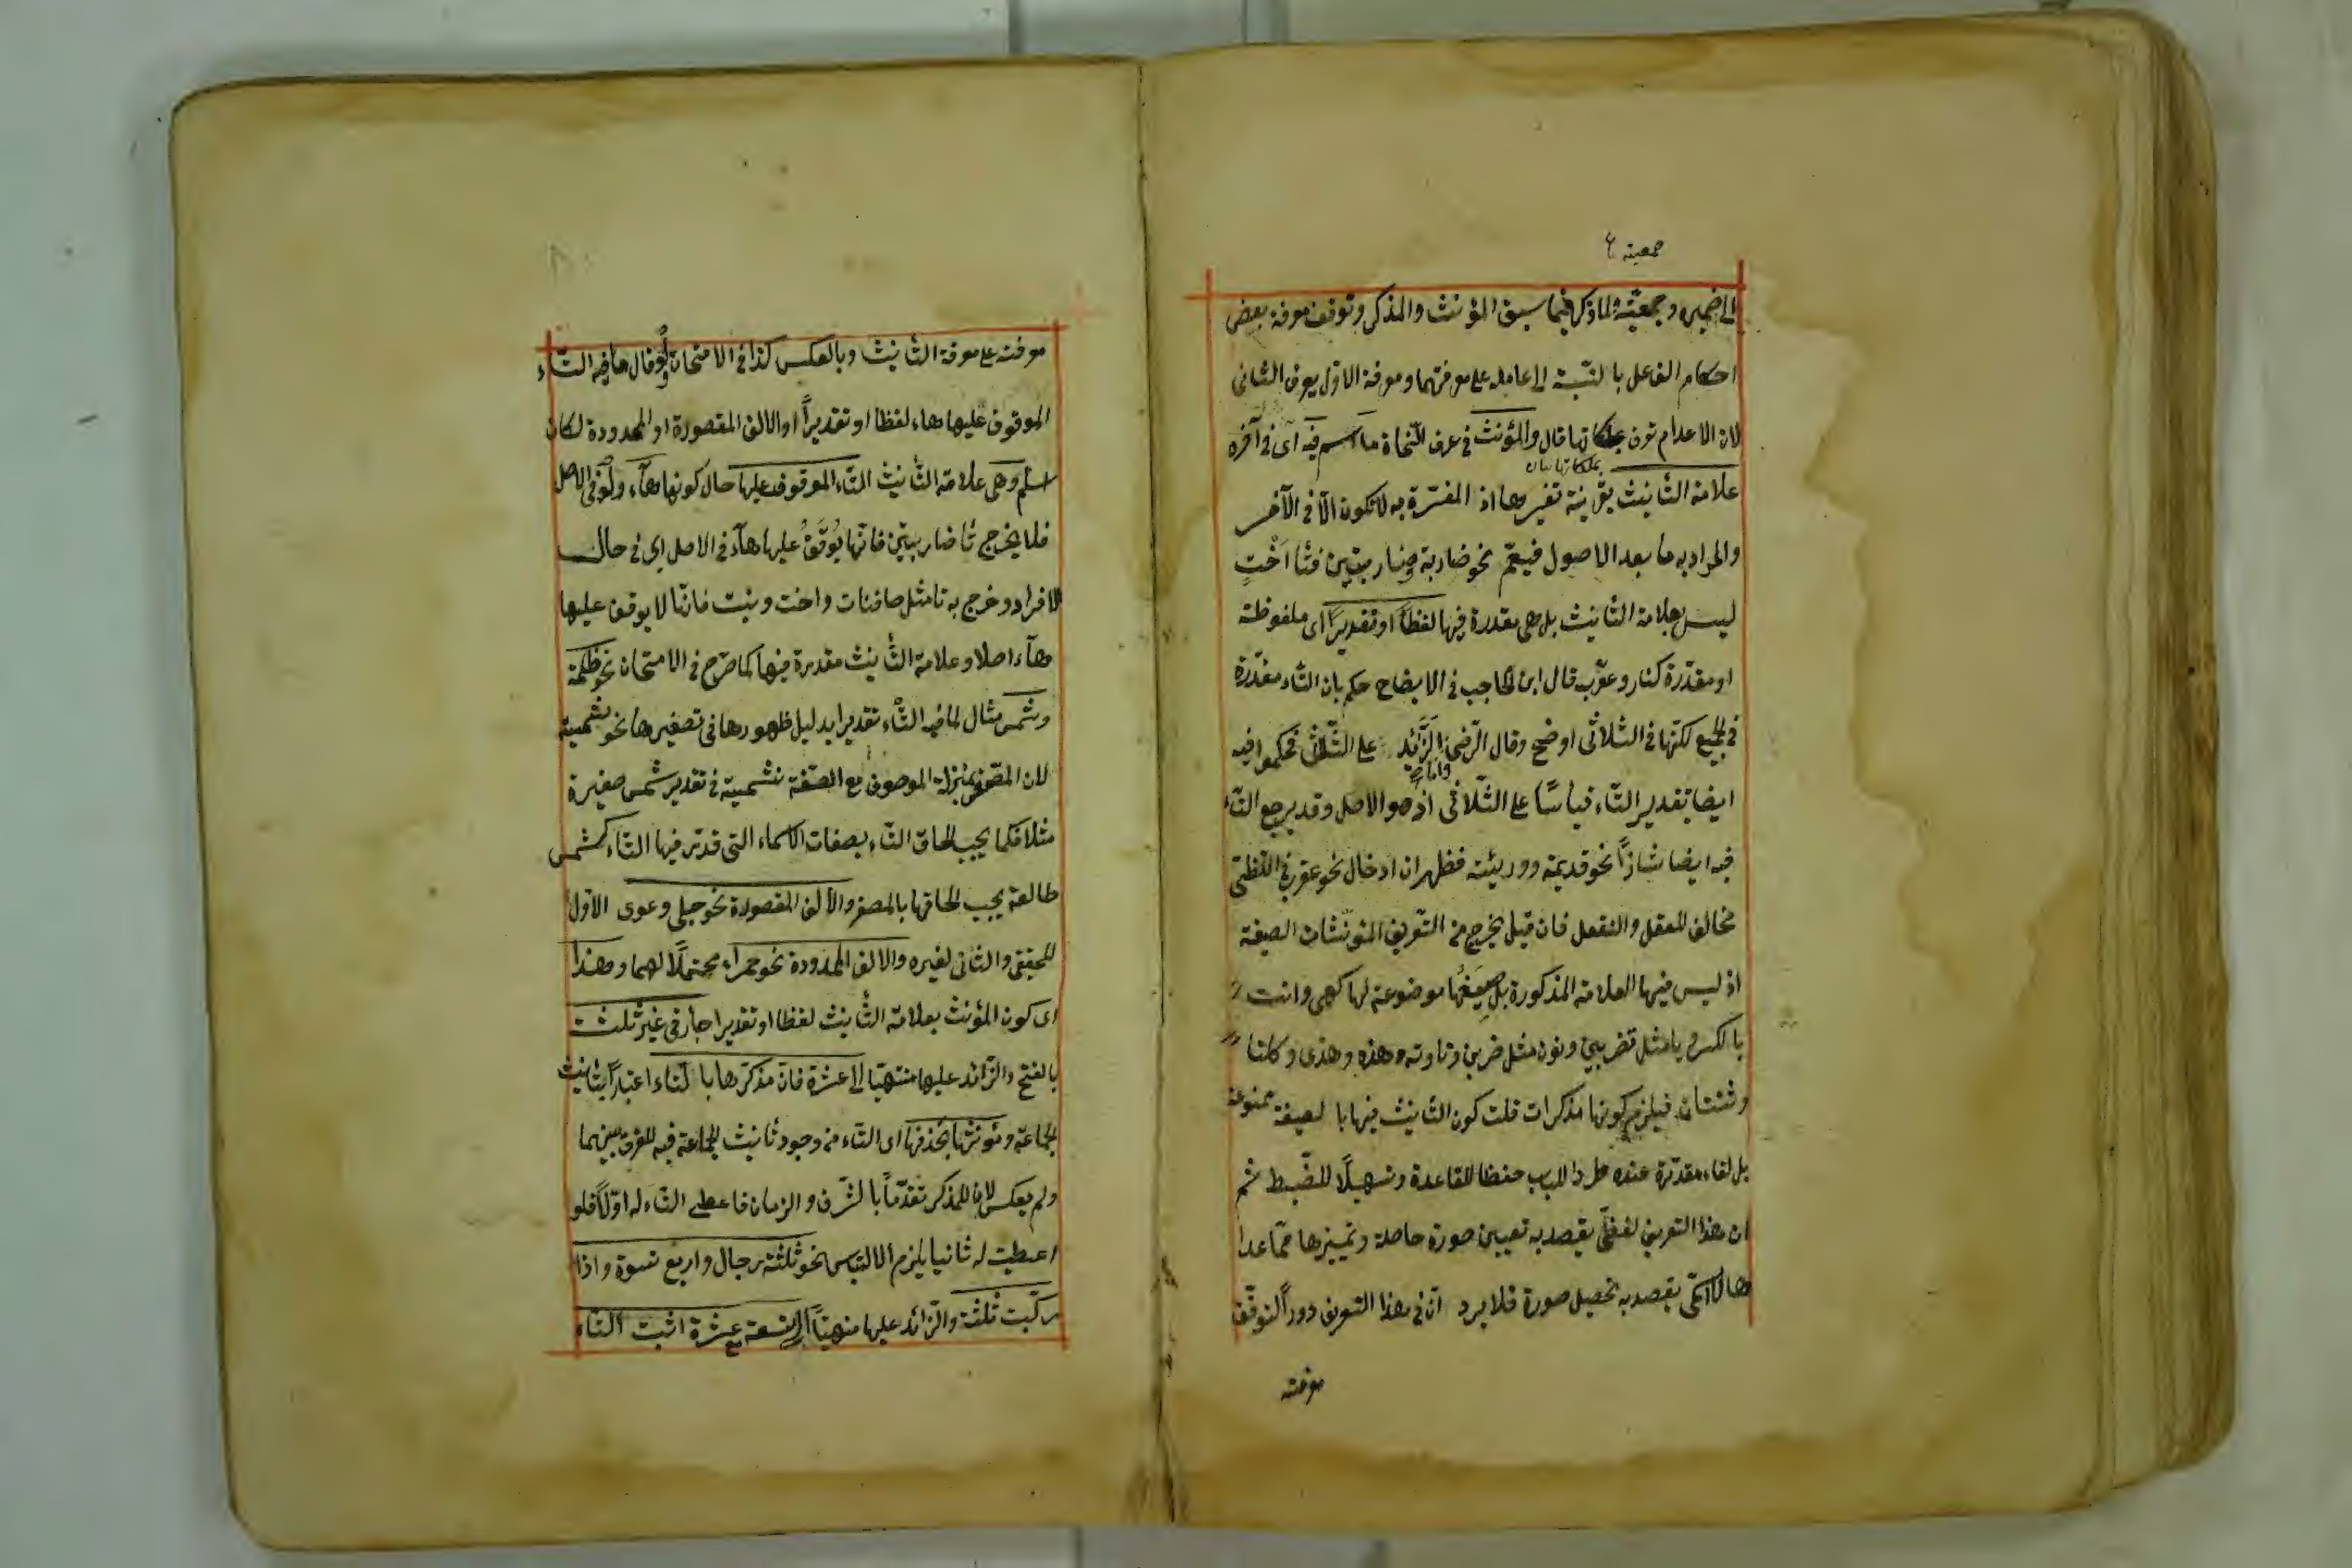 جمعيته ع
الى ضميره وجمعيته لما ذكر فيما سبق المؤنث والمذكر وتوقف معرفة بعض
احكام الفاعل بالنسبة الى عامله على معرفتهما ومعرفة الاول يعرف الثانى
لان الاعدام تعرف بملكاتها قال والمؤنث فى عرف النحاة ما اسم فيه اى فى آخره
بملكاتها بيان
علامة التأنيث بقرينة تفسيرها اذ المفسّرة به لا تكون الّا فى الآخر
والمراد به ما بعد الاصول فيعمّ نحو ضاربة وضاربتين فتا اُخْتٍ
ليس بعلامة التأنيث بل هى مقدرة فيها لفظاً او تقديراً اى ملفوظة
او مقدّرة كنار وعقرب قال ابن الحاجب فى الايضاح حكم بان التاء مقدّرة
فى الجميع لكنّها فى الثلاثى اوضح وقال الرضى الزّائد على الثلاثى فحكموا فيه
وامّا
ايضا بتقدير التاء قياسًا على الثلاثى اذ هو الاصل وقد يرجع التاء
فيه ايضا شاذّاً نحو قديمة ووريئة فظهر ان ادخال نحو عقرب فى اللفظى
مخالف للعقل والنقل فان قيل يخرج من التعريف المؤنثات الصيغة
اذ ليس فيها العلامة المذكورة بل صيغها موضوعة لها كهى وانت
بالكسر ويا مثل تضربين ونون مثل ضربن وتا وته وهذه وهذى وكلتا
وثنتان فيلزم كونها مذكرات قلت كون التأنيث فيها بالصيغة ممنوعة
بل لفاء مقدّرة عنده طردا للباب حفظا للقاعدة وتسهيلًا للضّبط ثم
ان هذا التعريف لفظىّ يقصد به تعيين صورة حاصلة وتمييزها عمّا عداها
لا اسمىّ يقصد به تحصيل صورة فلا يرد انّ فى هذا التعريف دوراً لتوقّف
معرفته
معرفته على معرفة التأنيث وبالعكس كذا فى الامتحان ولو قال ما فيه التاء
الموقوف عليها هاء لفظا او تقديراً او الالف المقصورة او الممدودة لكان
اسلم وهى علامة التأنيث التاء الموقوف عليها حال كونها هاء ولو فى الاصل
فلا يخرج تا ضاربتين فانها يُوقَفُ عليها هاءً فى الاصل اى فى حال
الافراد وخرج به تا مثل صافنات واخت وبنت فانّها لا يوقف عليها
هاء اصلا وعلامة التأنيث مقدرة فيها كما صرّح فى الامتحان نحو ظلمة
وشمس مثال لما فيه التّاء تقديرا بدليل ظهورها فى تصغيرها نحو شميسة
لان المصغر بمنزلة الموصوف مع الصّفة فشميسة فى تقدير شمس صغيرة
مثلا فكما يجب الحاق التاء بصفات الاسماء التى قدّر فيها التاء كشمس
طالعة يجب الحاقها بالمصغر والألف المقصورة نحو حبلى ودعوى الاول
للحقيقى والثانى لغيره والالف الممدودة نحو حمراء محتملًا لهما وهذا
اى كون المؤنث بعلامة التأنيث لفظا او تقديرا جار فى غير ثلث
بالفتح والزّائد عليها منتهيًا الى عشرة فانّ مذكّرها بالتاء اعتباراً بتأنيث
الجماعة ومؤنثها بحذفها اى التاء مع وجود تأنيث الجماعة فيه للفرق بينهما
ولم يعكس لان للمذكر تقدّماً بالشّرف والزمان فاعطى التاء له اوّلًا فلو
اعطيت له ثانيا يلزم الالتباس نحو ثلثة رجال واربع نسوة واذا
ركّبت ثلثة والزّائد عليها منهيّاً الى تسعة مع عشرة اثبت التاء